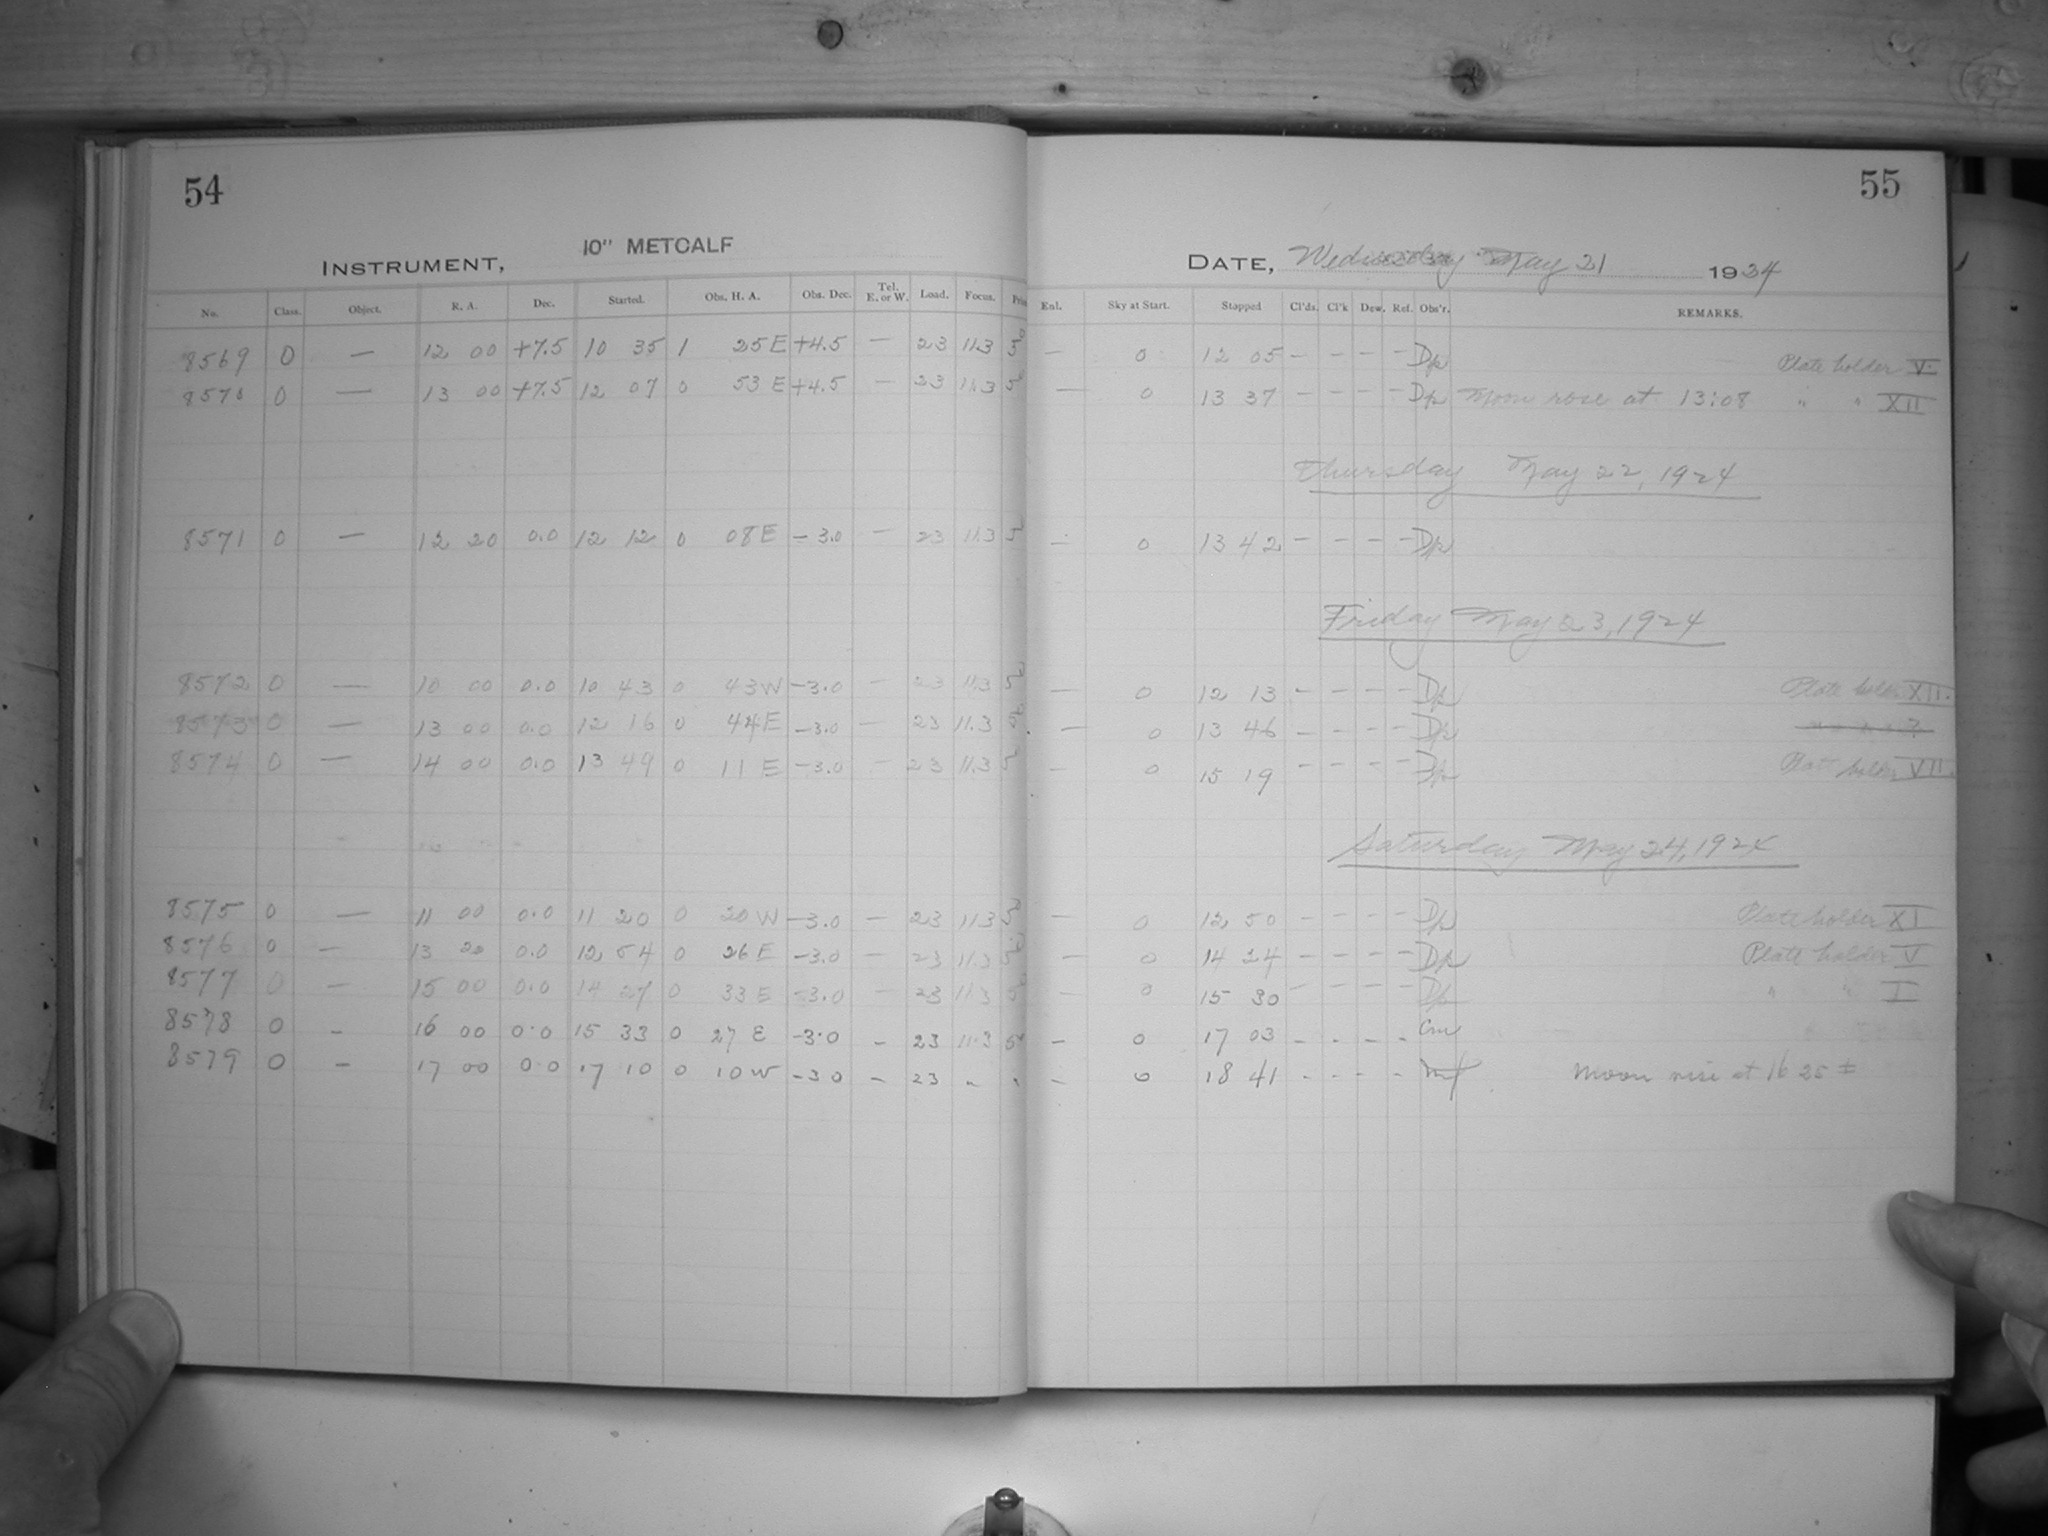 54
55
INSTRUMENT, 10" METCALF
DATE, Wednesday May 21 1924
No. Class. Object. R. A. Dec. Started. Obs. H. A. Obs. Dec. Tel. E. or W. Load. Focus. Enl. Sky at Start. Stopped Cl'ds. Cl'k Dew. Ref. Obs'r. REMARKS.
8569 0 — 12 00 +7.5 10 35 1 25 E +4.5 — 23 11.3 — 0 12 05 — — — — Dp Plate holder V
8570 0 — 13 00 +7.5 12 07 0 53 E +4.5 — 23 11.3 — 0 13 37 — — — — Dp Moon rose at 13:08 " " XII
Thursday May 22, 1924
8571 0 — 12 20 0.0 12 12 0 08 E -3.0 — 23 11.3 — 0 13 42 — — — — Dp
Friday May 23, 1924
8572 0 — 10 00 0.0 10 43 0 43 W -3.0 — 23 11.3 — 0 12 13 — — — — Dp Plate holder XII.
8573 0 — 13 00 0.0 12 16 0 44 E -3.0 — 23 11.3 — 0 13 46 — — — — Dp
8574 0 — 14 00 0.0 13 49 0 11 E -3.0 — 23 11.3 — 0 15 19 — — — — Dp Plate holder VII.
Saturday May 24, 1924
8575 0 — 11 00 0.0 11 20 0 20 W -3.0 — 23 11.3 — 0 12 50 — — — — Dp Plate holder XI
8576 0 — 13 20 0.0 12 54 0 26 E -3.0 — 23 11.3 — 0 14 24 — — — — Dp Plate holder V
8577 0 — 15 00 0.0 14 27 0 33 E -3.0 — 23 11.3 — 0 15 30 — — — — Dp " " I
8578 0 - 16 00 0.0 15 33 0 27 E -3.0 - 23 11.3 — 0 17 03 - - - - Cm
8579 0 - 17 00 0.0 17 10 0 10 W -3.0 - 23 " " - 0 18 41 - - - - Moon rise at 16 25 ±